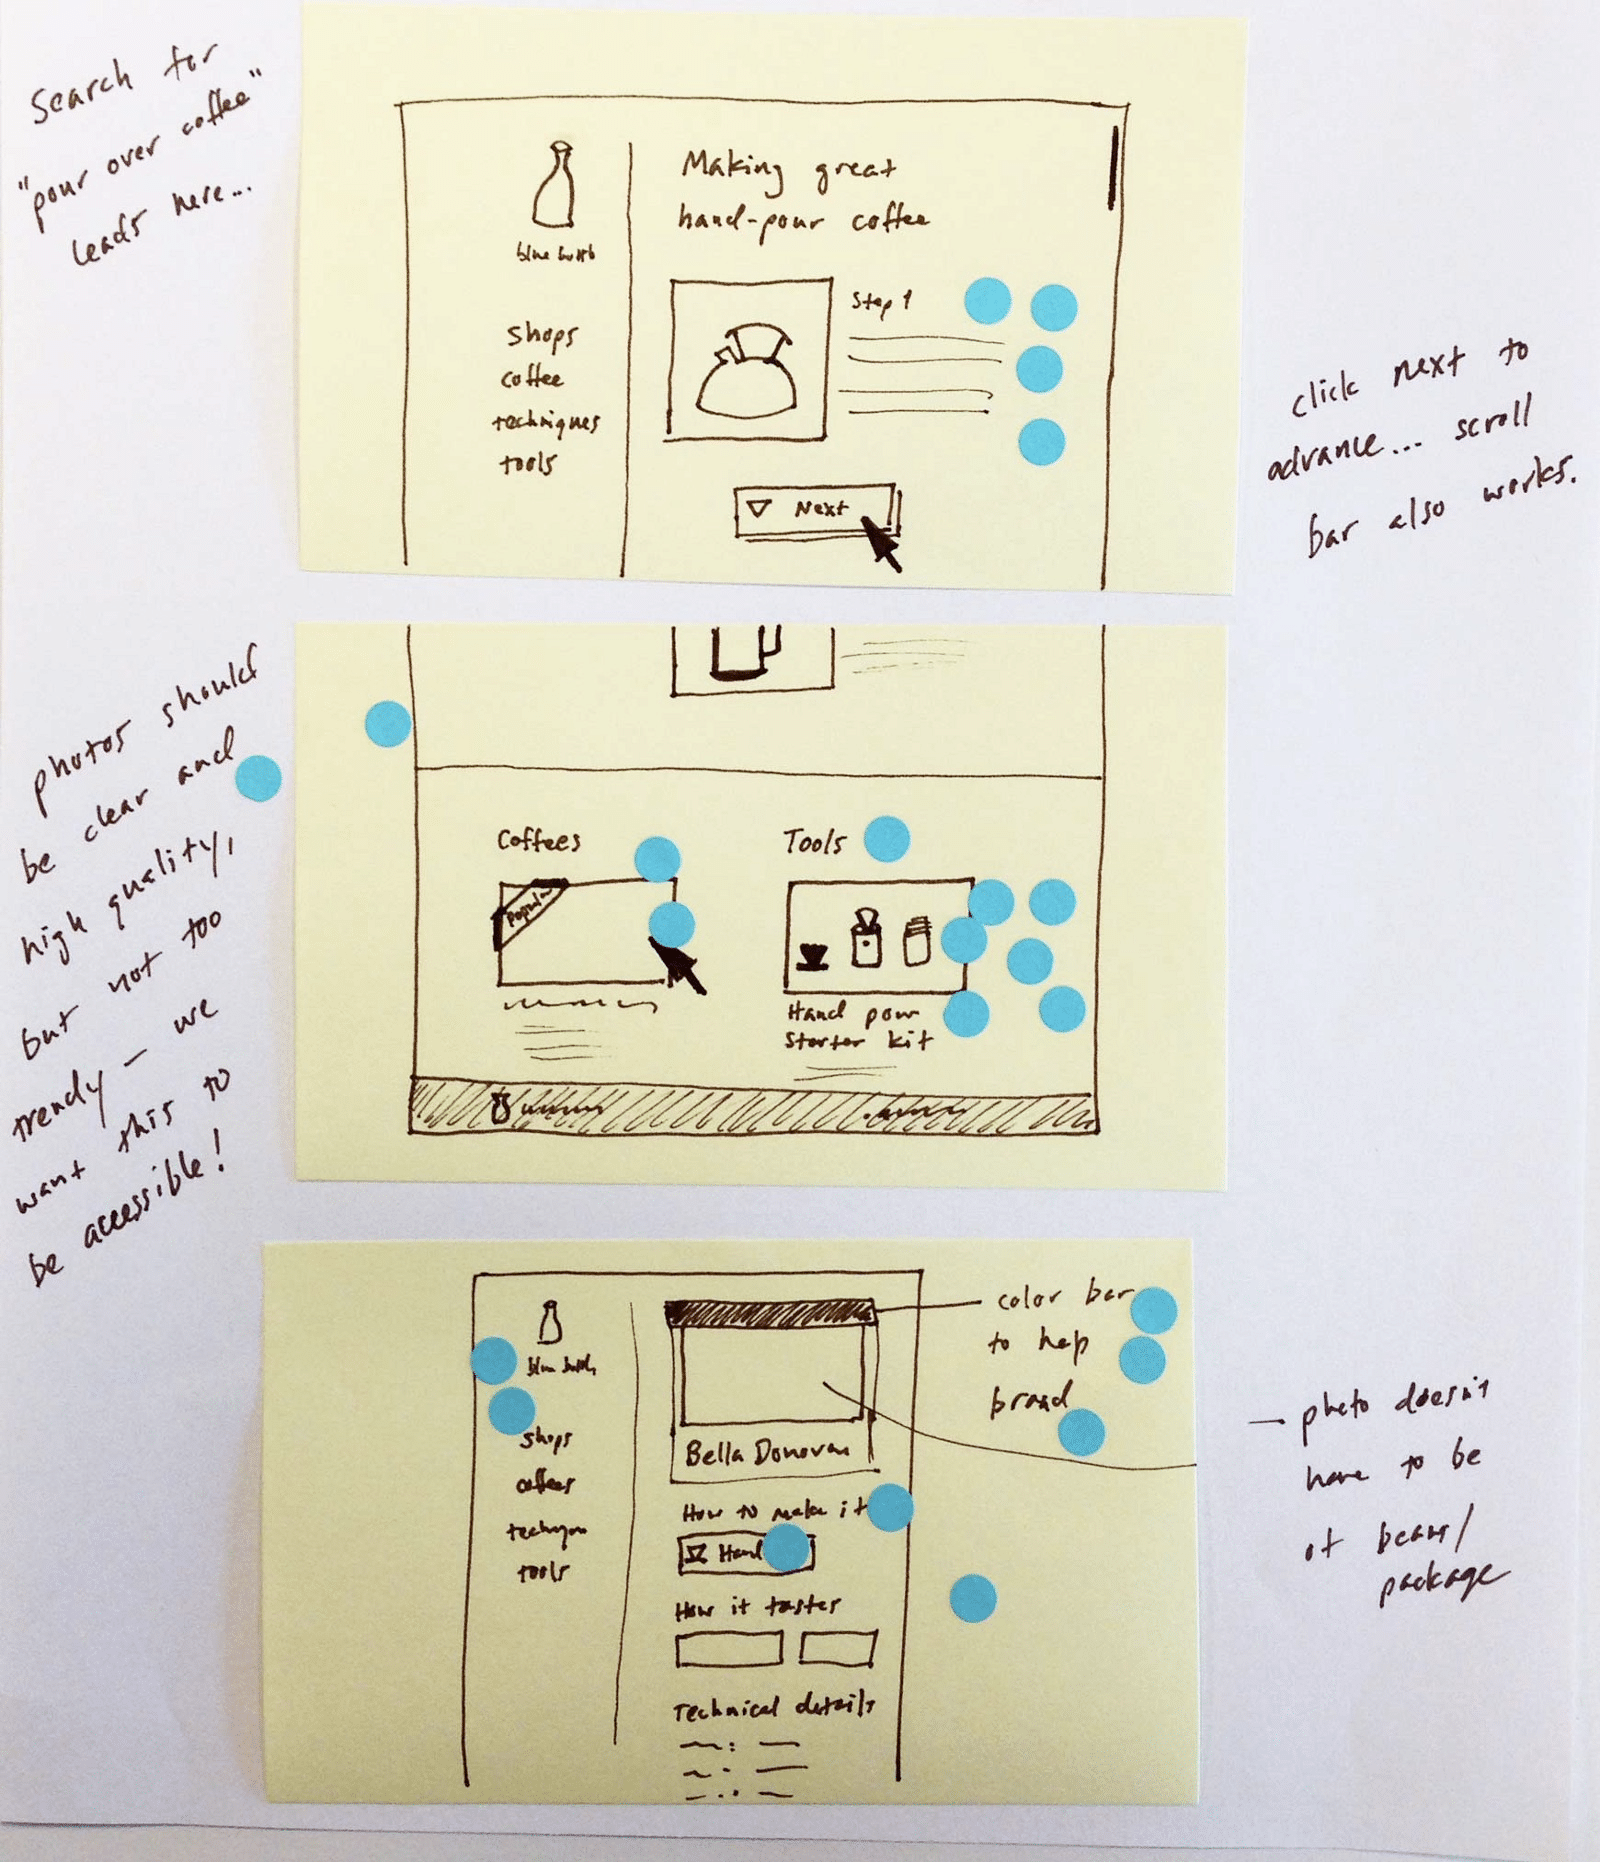 Search for
"pour over coffee"
leads here...
blue bottle
shops
coffee
techniques
tools
Making great
hand-pour coffee
Step 1
Next
click next to
advance... scroll
bar also works.
photos should
be clear and
high quality,
but not too
trendy – we
want this to
be accessible!
Coffees
Popular
Tools
Hand pour
starter kit
blue bottle
shops
coffees
tools
Bella Donovan
How to make it
Hand
How it tastes
Technical details
color bar
to help
brand
– photo doesn't
have to be
of beans/
package